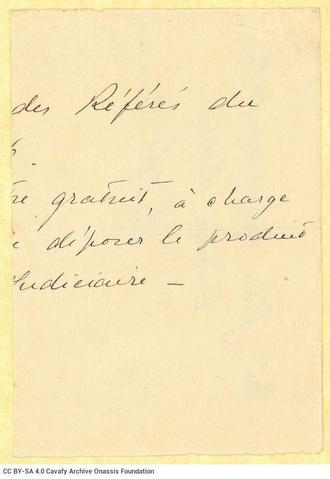 des Référés du
tre gratuit, à charge
déposer le produit
Judiciaire —
CC BY-SA 4.0 Cavafy Archive Onassis Foundation